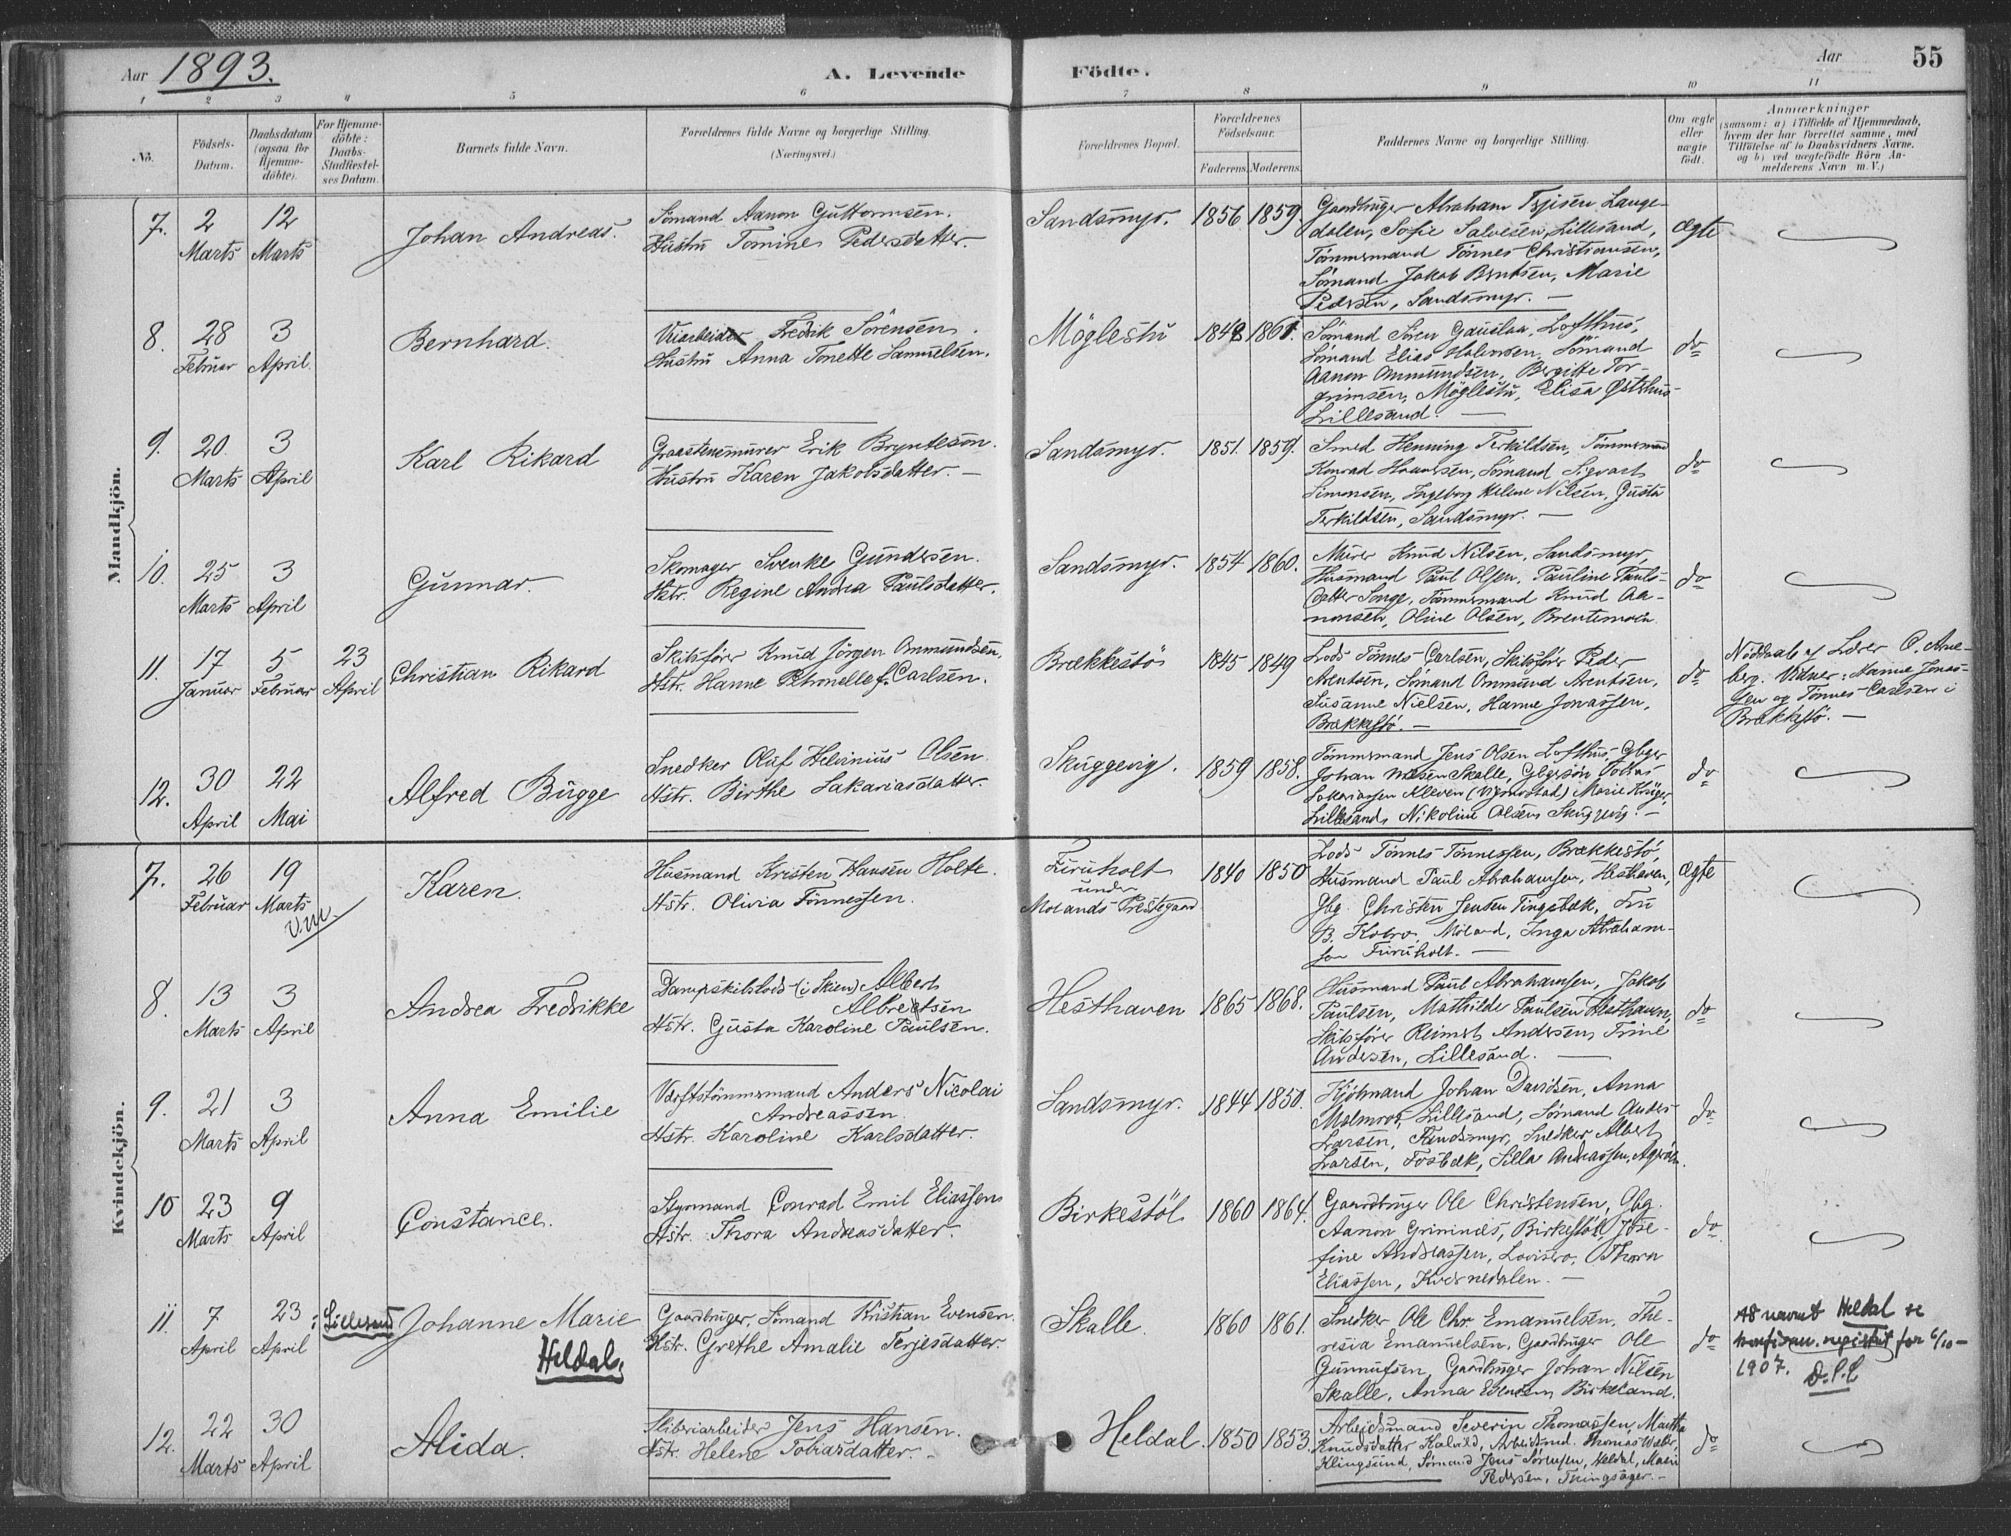 Aar 1893.
A. Levende
Födte.
Aar
55
1 2 3 4 5 6 7 8 9 10 11
No.
Födsels-
Datum.
Daabsdatum
(ogsaa for
Hjemme-
döbte).
For Hjemme-
döbte:
Daabs-
Stadfæstel-
ses Datum.
Barnets fulde Navn.
Forældrenes fulde Navne og borgerlige Stilling.
(Næringsvei.)
Forældrenes Bopæl.
Forældrenes
Födselsaar.
Faderens. Moderens.
Faddernes Navne og borgerlige Stilling.
Om ægte
eller
uægte
født.
Anmærkninger
(saasom: a) i Tilfælde af Hjemmedaab,
hvem der har forrettet samme, med
Tilföielse af to Daabsvidners Navne.
og b) ved uægtefödte Börn An-
melderens Navn m. V.)
Mandkjön.
7. 2 Marts
12 Marts
Johan Andreas.
Sömand Aanon Guttormsen.
Hustru Tomine Pedersdatter.
Sandsmyr. 1856 1859.
Gaardbruger Abraham Terjesen Lange-
dalen, Sofie Salvesen, Lillesand,
Tömmermand Tönnes Christiansen,
Sömand Jakob Berntsen, Marie
Pedersen, Sandsmyr.
Ægte
8. 28 Februar
3 April.
Bernhard.
Veiarbeider Fredrik Sörensen.
Hustru Anna Tonette Samuelsen.
Möglestu 1848 1861.
Sömand Sören Gauslaa, Lofthus,
Sömand Elias Halvorsen, Sömand
Aanon Ommundsen, Bergitte Tor-
grimsen, Möglestu, Elisa Østhus
Lillesand.
do
9. 20. Marts
3 April
Karl Rikard
Graastensmurer Erik Bryntesön.
Hustru Karen Jakobsdatter.
Sandsmyr. 1851. 1859.
Smed Henning Terkildsen, Tömmermand
Konrad Haaversen, Sömand Sigvart
Simonsen, Ingeborg Helene Nilsen, Gusta
Terkildsen, Sandsmyr.
do
10. 25 Marts
3 April
Gunnar.
Skomager Svenke Gundersen.
Hstr. Regine Andrea Paulsdatter.
Sandsmyr. 1854 1860.
Murer Knud Nilsen, Sandsmyr,
Husmand Paul Olsen, Pauline Pauls-
datter Songe, Tömmermand Knud Aa-
nonsen, Oline Olsen, Brentemoen.
do
11. 17 Januar
5 Februar
23 April
Christian Rikard
Skibsförer Knud Jörgen Ommundsen.
Hstr. Hanne Petronelle f. Carlsen.
Brækkestö 1845 1849
Lods Tönnes Carlsen, Skibsförer Peder
Arentsen, Sömand Ommund Arentsen,
Susanne Nielsen, Hanne Jonassen,
Brækkestö.
do
Nöddaab af Lærer O. Arne-
berg. Vidner: Hanne Jonas-
sen og Tönnes Carlsen i
Brækkestö.
12. 30 April
22 Mai
Alfred Bugge
Snedker Oluf Helvinius Olsen.
Hstr. Birthe Sakariasdatter.
Skuggevig. 1859 1858.
Tömmermand Jens Olsen Lofthus, Gbger
Johan Nilsen Skalle, Gbgersön Tobias
Sakariassen Kleven Marie Kröger,
Lillesand, Nikoline Olsen Skuggevig.
do
Kvindekjön.
7. 26 Februar
19 Marts
Karen.
Husmand Kristen Hansen Holte.
Hstr. Olivia Tönnessen.
Furuholt
under
Molands Prestegaard
1840 1850
Lods Tönnes Tönnessen, Brækkestö,
Husmand Paul Abrahamsen, Hesthaven,
Gbg. Christen Jensen Tingsbæk, Fru
B. Moland, Inga Abraham-
sen Furuholt.
Ægte
8. 13 Marts
3 April
Andrea Fredrikke
Dampskibslods (i Skien) Albert
Albretsen
Hstr. Gusta Karoline Paulsen.
Hesthaven 1865 1868.
Husmand Paul Abrahamsen, Jakob
Paulsen, Mathilde Paulsen Hesthaven,
Skibsförer Reimert Andersen, Trine
Andersen, Lillesand.
do
9. 21 Marts
3 April
Anna Emilie
Værftstömmermand Anders Nicolai
Andreassen.
Hstr. Karoline Karlsdatter.
Sandsmyr. 1844 1850.
Kjöbmand Johan Davidsen, Anna
Malmros, Lillesand, Sömand Anders
Larsen, Sandsmyr, Snedker Albert
Larsen, Fosbæk, Silla Andreassen,
do
10 23 Marts
9 April
Constance.
Styrmand Conrad Emil Eliassen
Hstr. Thora Andreasdatter.
Birkestöl 1860 1864.
Gaardbruger Ole Christensen, Gbg.
Aanon Grimnes, Birkestöl, Jose-
fine Andreassen, Thora
Eliassen, Kvernedalen.
do
11. 7 April
23 April
Lillesand
Johanne Marie
Heldal.
Gaardbruger, Sömand Kristian Evensen.
Hstr. Grethe Amalie Terjesdatter.
Skalle. 1860 1861.
Snedker Ole Chr. Emanuelsen, The-
resia Emanuelsen, Gaardbruger Ole
Gunnufsen, Gaardbruger Johan Nilsen
Skalle, Anna Evensen Birkeland.
do
navnet Heldal se
konfirm. registret for 6/10-
1907. D.S.L
12. 22 Marts
30 April
Alida.
Sliberiarbeider Jens Hansen.
Hstr. Helene Tobiasdatter.
Heldal. 1850 1853.
Arbeidsmand Severin Thomassen, Martha
Knudsdatter Kalvild, Arbeidsmd. Thomas
Klingsund, Sömand Jens Sörensen, Heldal, Maren
Pedersen, Tingsager.
do